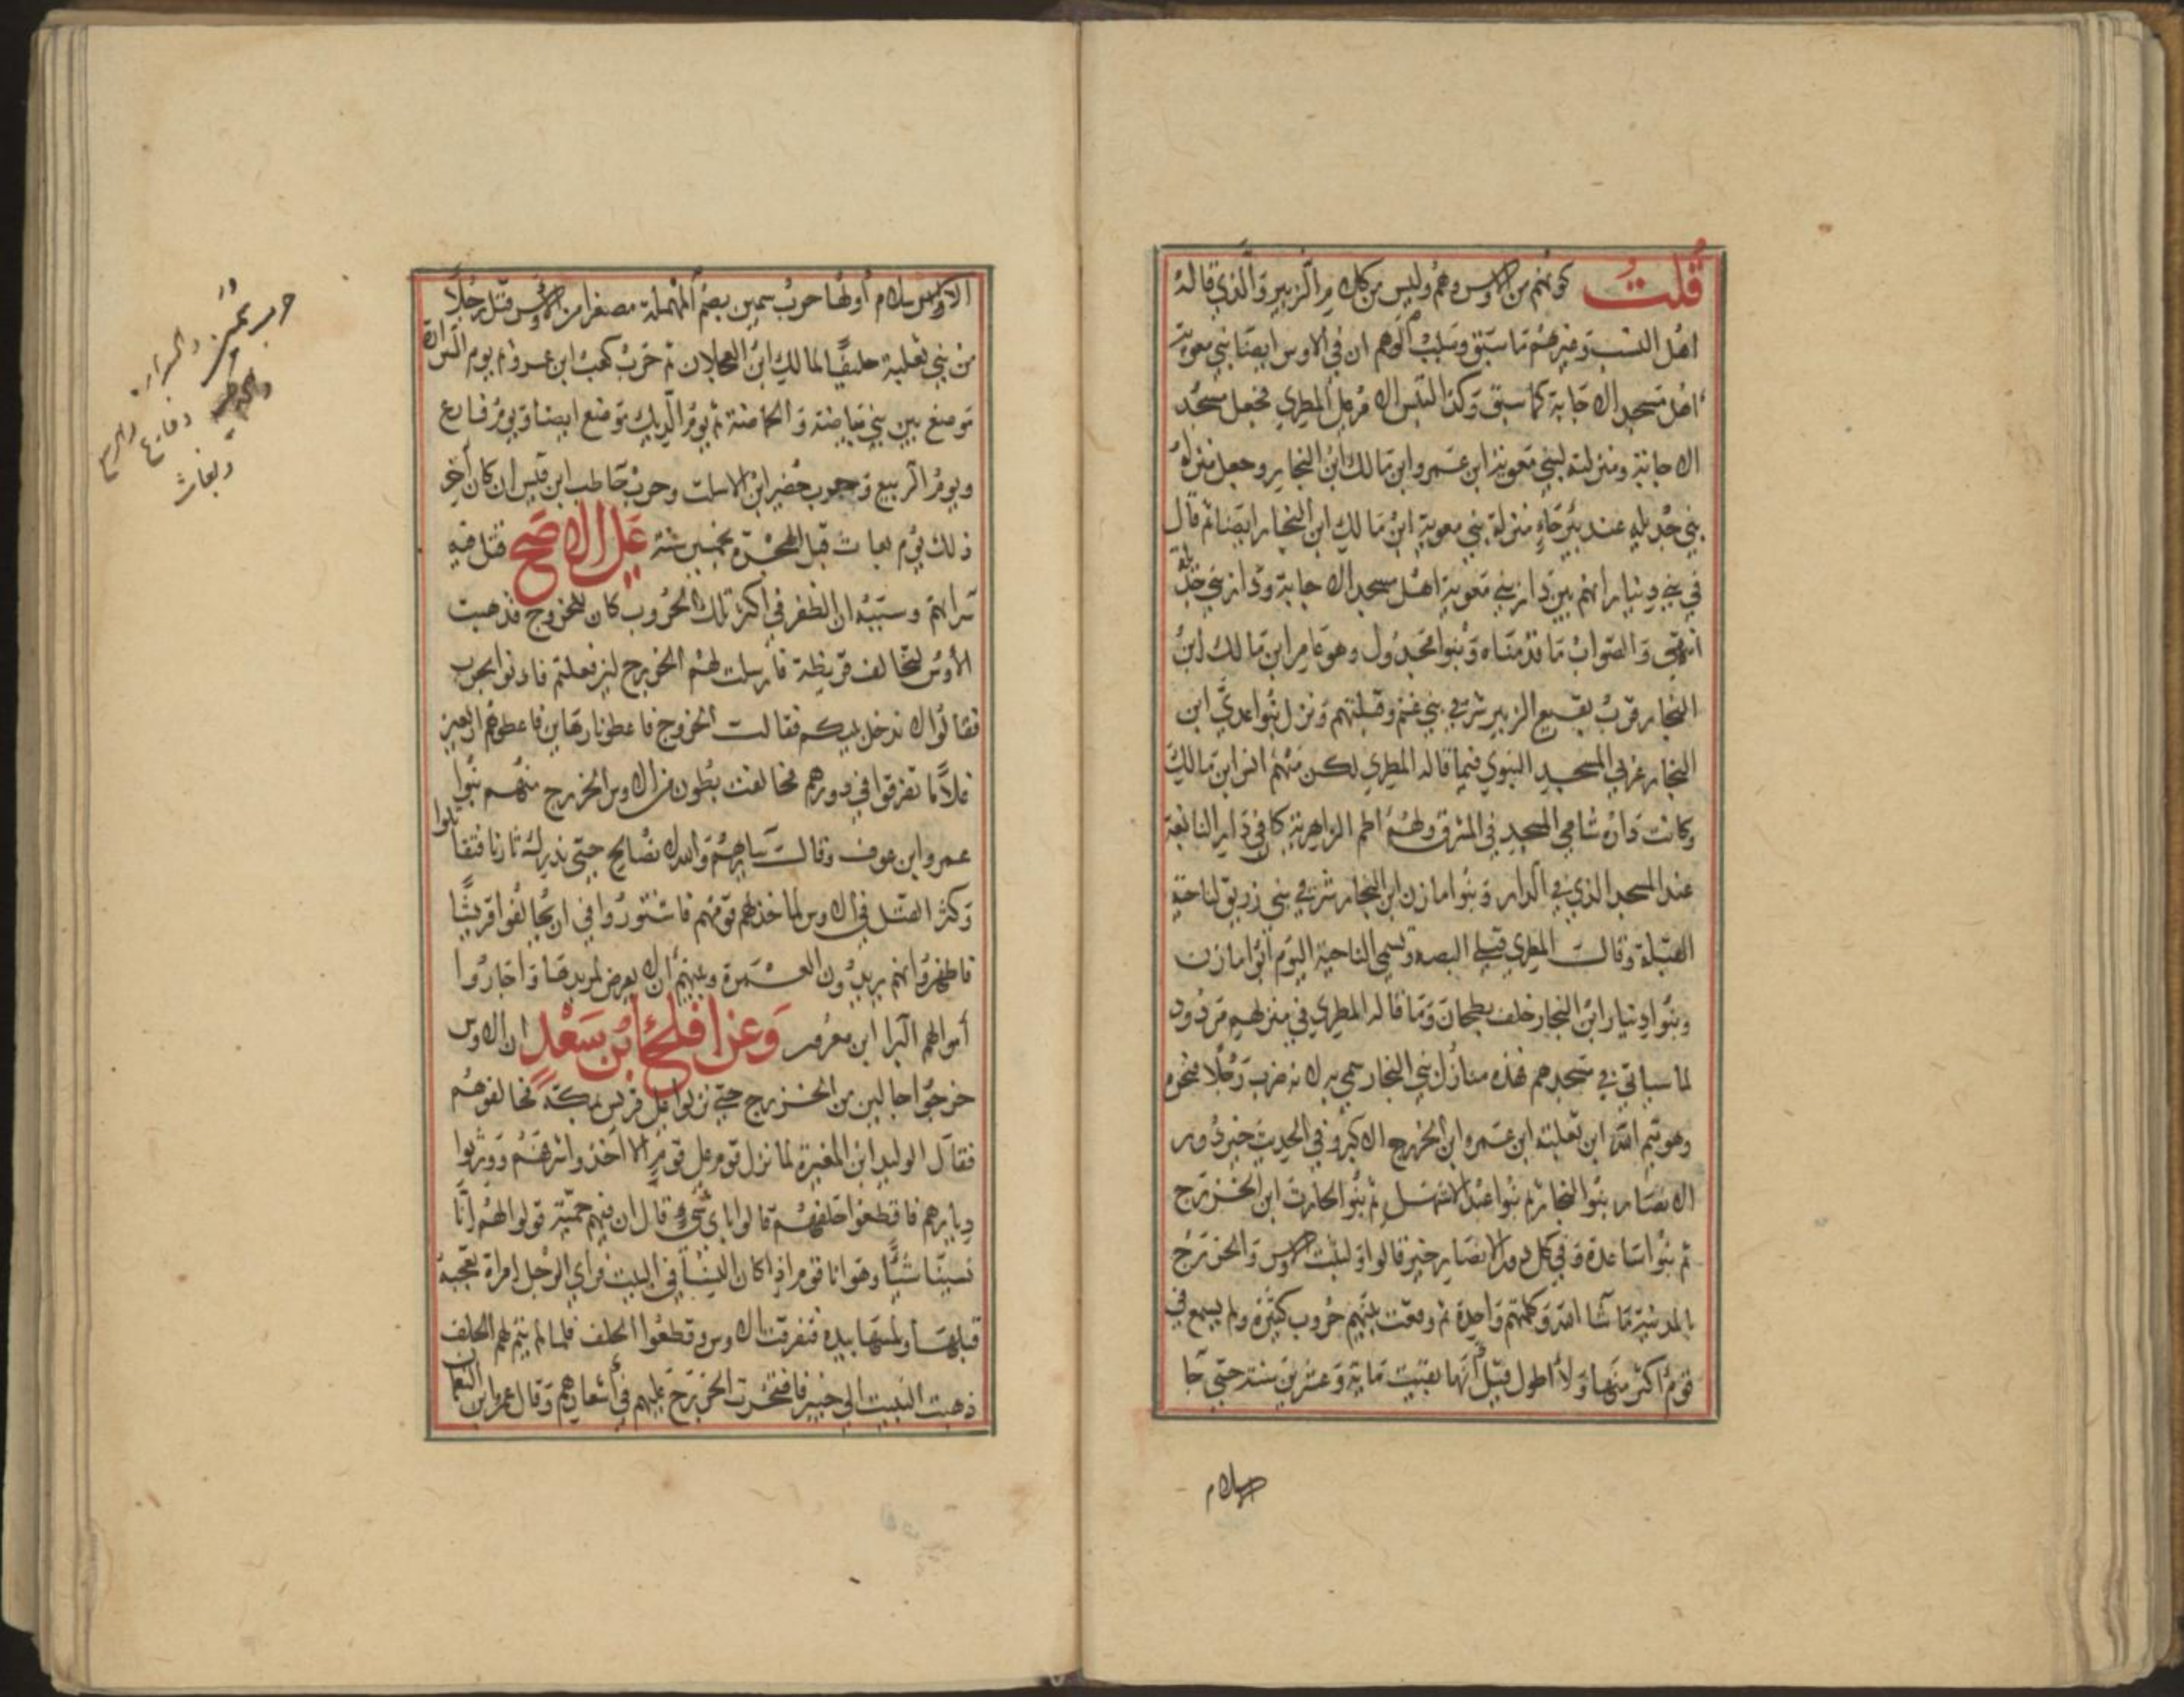 قلت كونهم من الاوس وهم وليس من كلام ابن الزبير والذي قاله
اهل النسب وغيرهم ما سبق وسبب الوهم ان في الاوس ايضا بني معوية
اهل مسجد الاجابة كما سبق وكذا التبس الامر على المطري فجعل مسجد
الاجابة ومنزلته لبني معوية ابن عمرو ابن مالك ابن النجار وجعل منزلة
بني جديلة عند بئر حاء منزلة بني معوية ابن مالك ابن النجار ايضا ثم قال
في بني دينار انهم بين دار بني معوية اهل مسجد الاجابة ودار بني جديلة
انتهى والصواب ما قدمناه وبنوا مجدول وهو عامر ابن مالك ابن
النجار قرب بقيع الزبير شرقي بني غنم وقبلتهم ونزل بنوا عدي ابن
النجار غربي المسجد النبوي فيما قاله المطري لكن منهم انس ابن مالك
وكانت داره شامي المسجد في المشرق ولهم اطم الزاهرية كان في دار النابغة
عند المسجد الذي في الدار وبنوا مازن ابن النجار شرقي بني زريق لناحية
القبلة وقال المطري قبلي البصة وتسمى الناحية اليوم ابوا مازن
وبنوا دينار ابن النجار خلف بطحان وما قاله المطري في منزلهم مردود
لما سياتي في مسجدهم فهذه منازل بني النجار سمي به لانه ضرب رجلا فنجره
وهو تيم الله ابن ثعلبة ابن عمرو ابن الخزرج الاكبر وفي الحديث خير دور
الانصار بنوا النجار ثم بنوا عبد الاشهل ثم بنوا الحارث ابن الخزرج
ثم بنوا ساعدة وفي كل دور الانصار خير قالوا ولبثت الاوس والخزرج
بالمدينة ما شا الله وكلمتهم واحدة ثم وقعت بينهم حروب كثيرة ولم يسمع في
قوم اكثر منها ولا اطول قيل انها بقيت ماية وعشرين سنة حتى جا
الاسلام
الاوس سلام اولها حرب سمير بضم المهملة مصغرا من الاوس قتل رجلا
من بني ثعلبة حليفا لمالك ابن العجلان ثم حرب كعب ابن عمرو ثم يوم السرارة
موضع بين بني بياضة والحماضة ثم يوم الديك موضع ايضا ويوم فارع
ويوم الربيع وحروب حضير ابن الاسلت وحرب حاطب ابن قيس ان كان آخر
ذلك يوم بعاث قبل الهجرة بخمس سنة على الاصح قتل فيه
سراتهم وسببه ان الظفر في اكثر تلك الحروب كان للخزرج فذهبت
الأوس لتحالف قريظة فارسلت لهم الخزرج لئن فعلتم فاذنوا بحرب
فقالوا لا ندخل بينكم فقالت الخزرج فاعطونا رهاين فاعطوهم اربعين
غلاما تفرقوا في دورهم فحالفت بطون من الاوس الخزرج منهم بنوا
عمرو ابن عوف وقالت سايرهم والله لا نصالح حتى ندرك ثارنا فتقاتلوا
وكثر القتل في الاوس لما خذلهم قومهم فاشتوروا في ان يحالفوا قريشا
فاظهروا انهم يريدون العمرة وبينهم ان لا يعرض لمريدها واجاروا
أموالهم البرا ابن معرور وعن افلح ابن سعد ان الاوس
خرجوا جالين من الخزرج حتى نزلوا على قريش بمكة فحالفوهم
فقال الوليد ابن المغيرة لما نزل قوم على قوم الا اخذوا شرفهم وورثوا
ديارهم فاقطعوا حلفهم قالوا باي شيء قال ان فيهم حمية قولوا لهم انا
نسينا شيئا وهو انا قوم اذا كان النسا في البيت فراي الرجل امراة تعجبه
قبلها ولمسها بيده فنفرت الاوس وقطعوا الحلف فلما لم يتم لهم الحلف
ذهبت النبيت الى خيبر فافتخرت الخزرج عليهم في أشعارهم وقال عمر ابن النعمان
حرب سمير
والسراره
وفارع والربيع
وبعاث